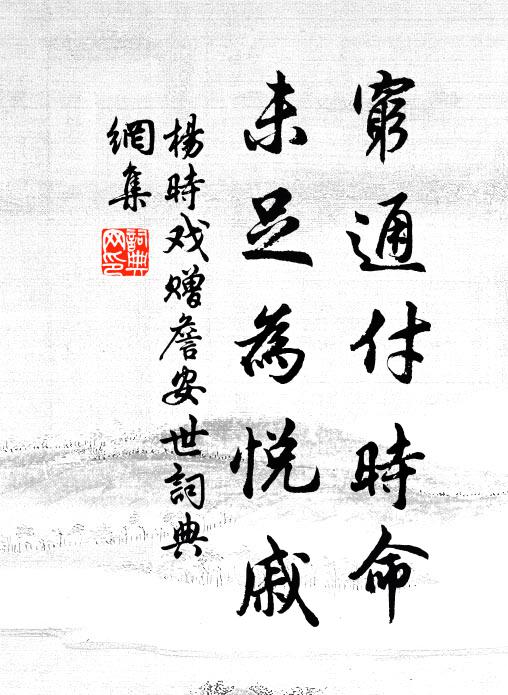 窮通付時命
未足為悅戚
楊時戏赠詹安世詞典
網集
詞典
网印